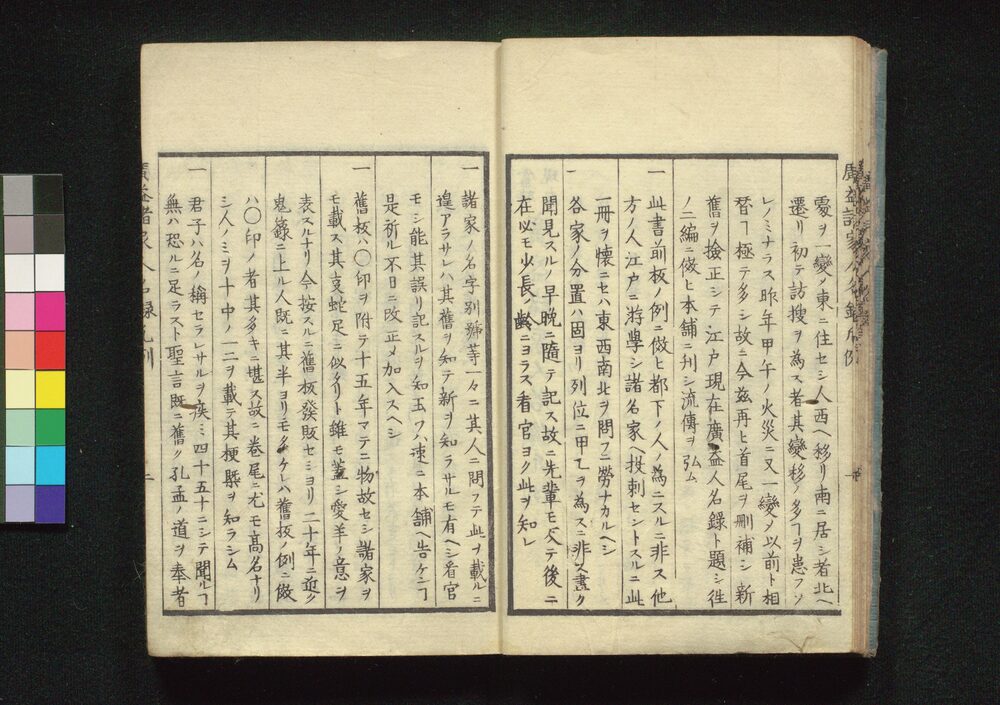 雯ヲ一變メ東ニ住セシ人西ヘ移リ南ニ居シ者北ヘ
遷リ初テ訪搜ヲ為ス者其變移ノ多ヿヲ患フソ
レノミナラス昨年甲午ノ火災ニ又一變メ以前ト相
替ヿ極テ多シ故ニ今茲再ヒ首尾ヲ刪補シ新
舊ヲ撿正シテ江戸現在廣益人名録ト題シ徃
ノ二編ニ倣ヒ本舗ニ刊シ流傳ヲ弘ム
一此書前板ノ例ニ倣ヒ都下ノ人ノ為ニスルニ非ス他
方ノ人江戸ニ游學シ諸名家ヘ投刺セントスルニ此
一冊ヲ懐ニセハ東西南北ヲ問フニ勞ナカルヘシ
一各家ノ分置ハ固ヨリ列位ニ甲乙ヲ為スニ非ス盡ク
聞見スルノ早晩ニ隨テ記ス故ニ先輩モ反テ後ニ
在必モ少長ノ齢ニヨラス看官ヨク此ヲ知レ
一諸家ノ名字別號等一々ニ其人ニ問フテ此ヲ載ルニ
遑アラサレハ其舊ヲ知テ新ヲ知ラサルモ有ヘシ看官
モシ能其誤リ記スルヲ知玉フハ速ニ本舗ヘ告ケンヿ
是祈ル不日ニ改正メ加入スヘシ
一舊板ハ〇印ヲ附テ十五年マテニ物故セシ諸家ヲ
モ載ス其支蛇足ニ似タリト雖モ蓋シ愛羊ノ意ヲ
表スルナリ今按スルニ舊板發販セシヨリ二十年ニ近ク
鬼籙ニ上ル人既ニ其半ヨリモ多ケレハ舊板ノ例ニ倣
ハ〇印ノ者其多キニ堪ス故ニ巻尾ニ尤モ高名ナリ
シ人ノミヲ十中ノ一二ヲ載テ其梗槩ヲ知ラシム
一君子ハ名ノ稱セラレサルヲ疾ミ四十五十ニシテ聞ルヿ
無ハ恐ルニ足ラスト聖言既ニ舊ク孔孟ノ道ヲ奉者
廣益諸家人名録凡例 二